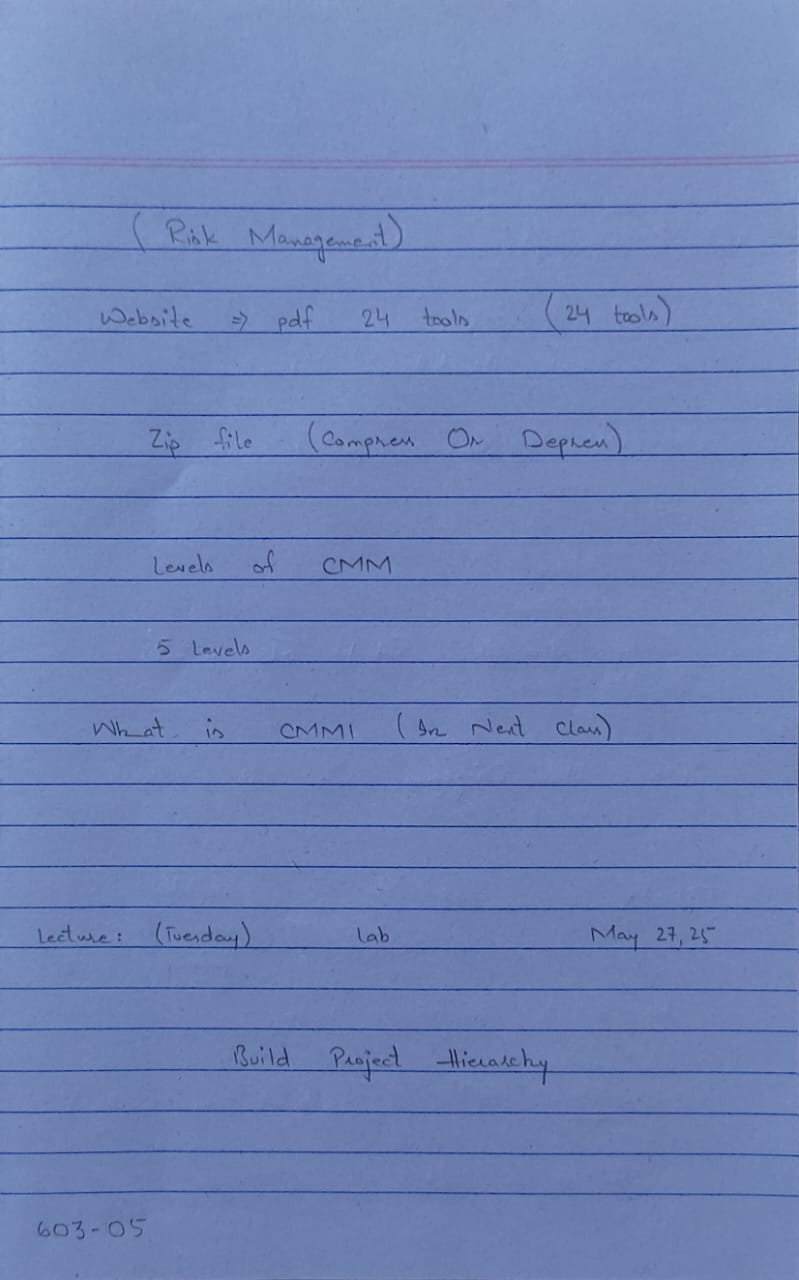 (Risk Management)
Website => pdf 24 tools (24 tools)
Zip file (Compress Or Depress)
Levels of CMM
5 Levels
What is CMMI (In Next Class)
Lecture: (Tuesday) lab May 27, 25
Build Project Hierarchy
603-05